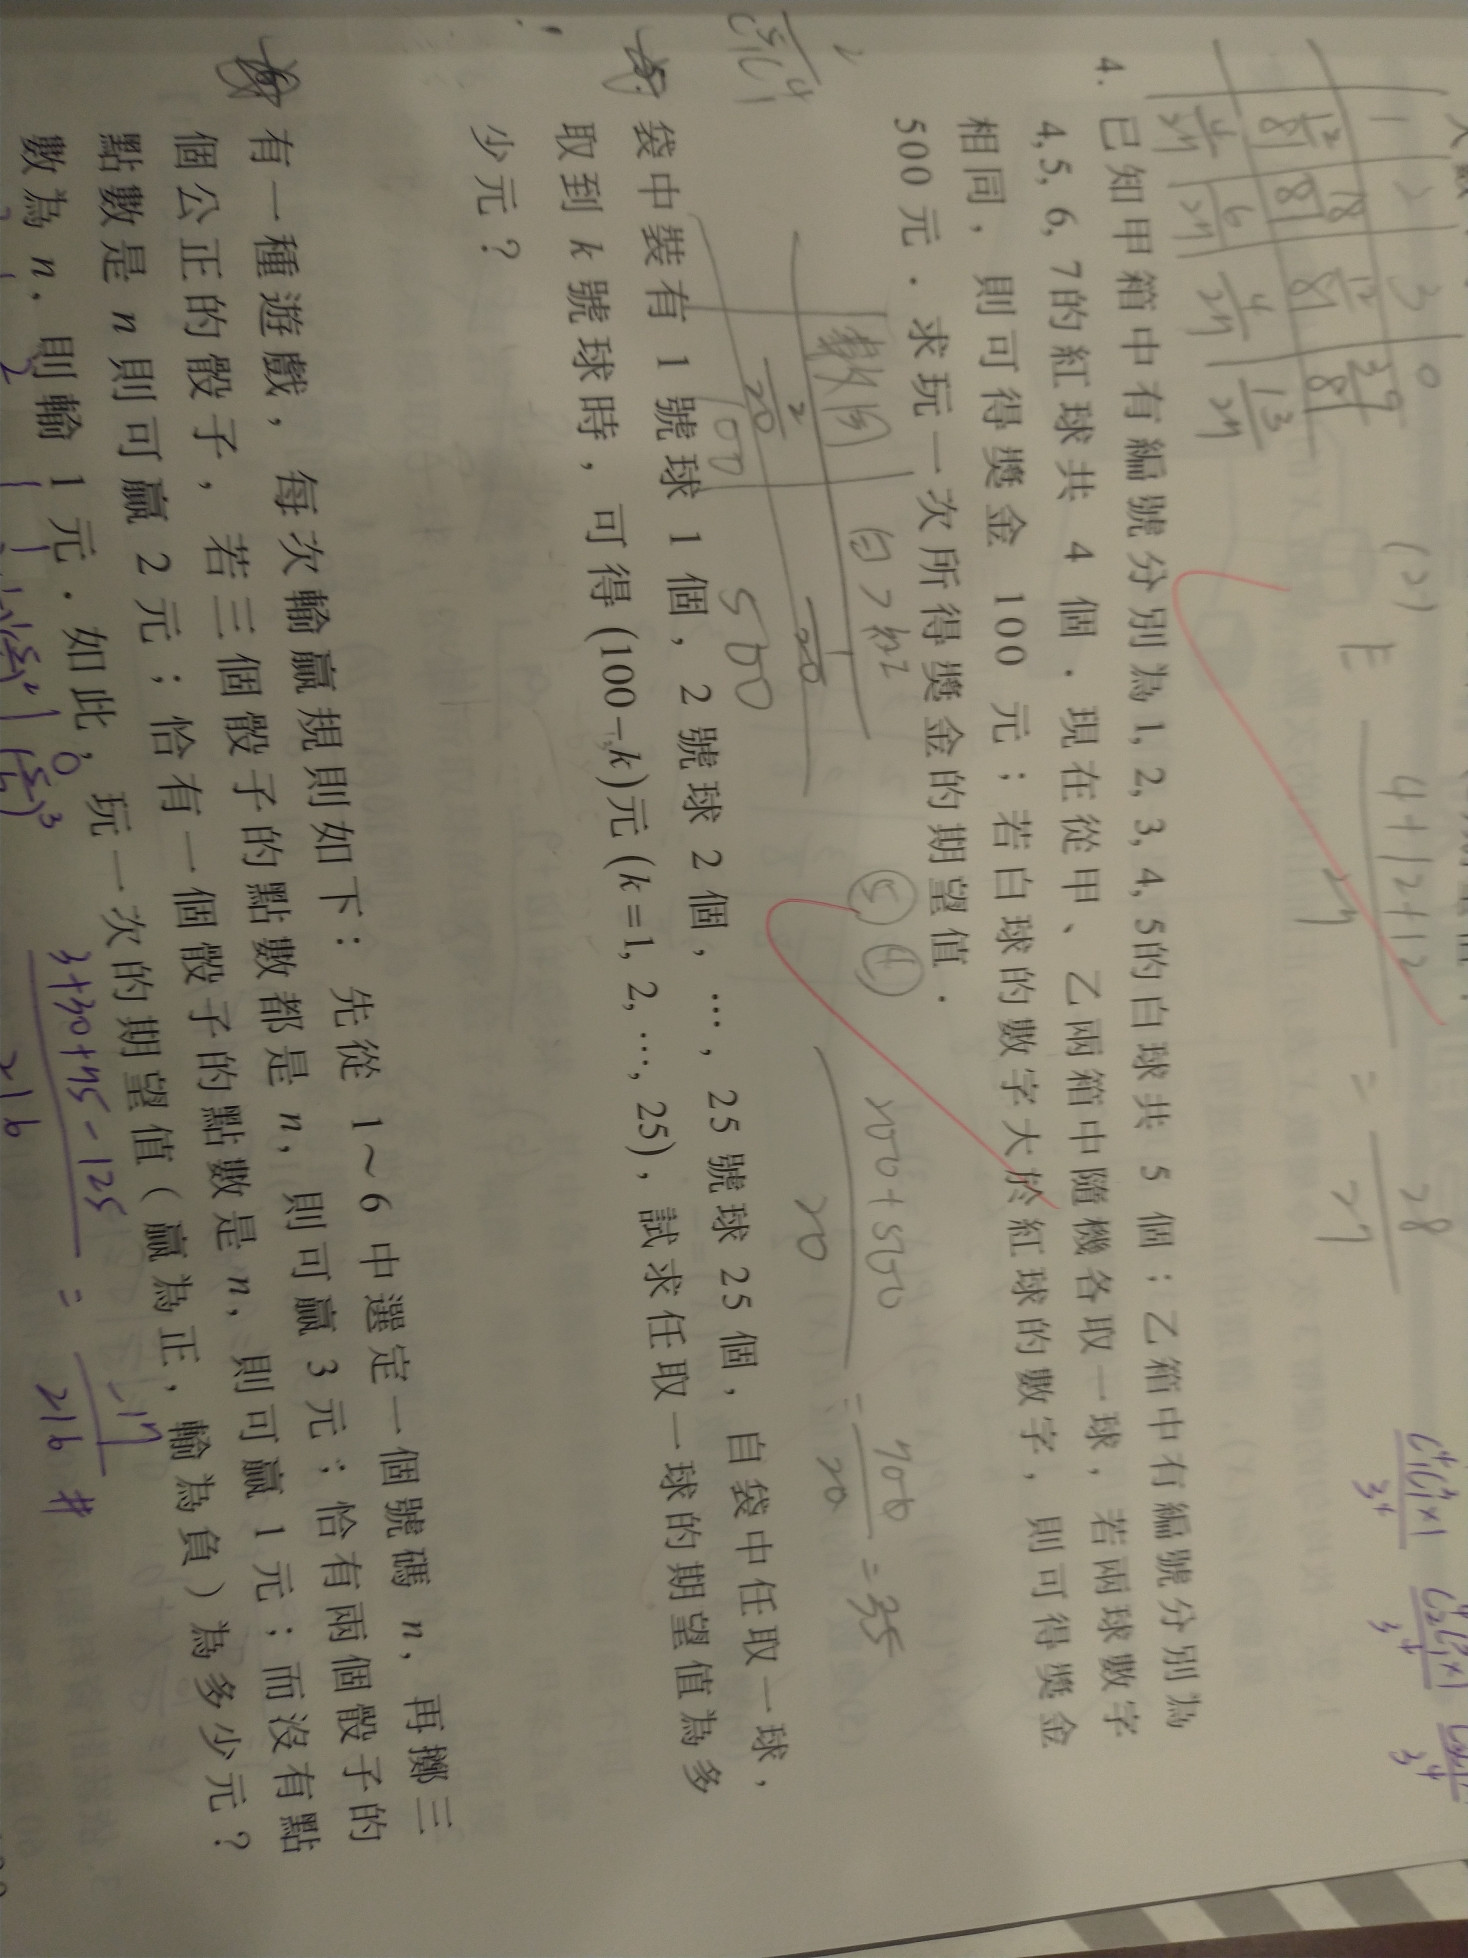 1 2 3 0
12/81 18/81 12/81 39/81
4/27 6/27 4/27 13/27
(2) E 4+12+12/27 = 28/27
4. 已知甲箱中有編號分別為1, 2, 3, 4, 5的白球共 5 個；乙箱中有編號分別為
4, 5, 6, 7的紅球共 4 個．現在從甲、乙兩箱中隨機各取一球，若兩球數字
相同，則可得獎金 100 元；若白球的數字大於紅球的數字，則可得獎金
500 元．求玩一次所得獎金的期望值．
⑤ ④
2/20 1/20
100 500
200+500/20 = 700/20 = 35
5. 袋中裝有 1 號球 1 個，2 號球 2 個，…，25 號球 25 個，自袋中任取一球，
取到 k 號球時，可得 (100−k)元 (k=1, 2, …, 25)，試求任取一球的期望值為多
少元？
6. 有一種遊戲，每次輸贏規則如下：先從 1～6 中選定一個號碼 n，再擲三
個公正的骰子，若三個骰子的點數都是 n，則可贏 3 元；恰有兩個骰子的
點數是 n 則可贏 2 元；恰有一個骰子的點數是 n，則可贏 1 元；而沒有點
數為 n，則輸 1 元．如此，玩一次的期望值（贏為正，輸為負）為多少元？
3+30+75-125/216 = -17/216 #